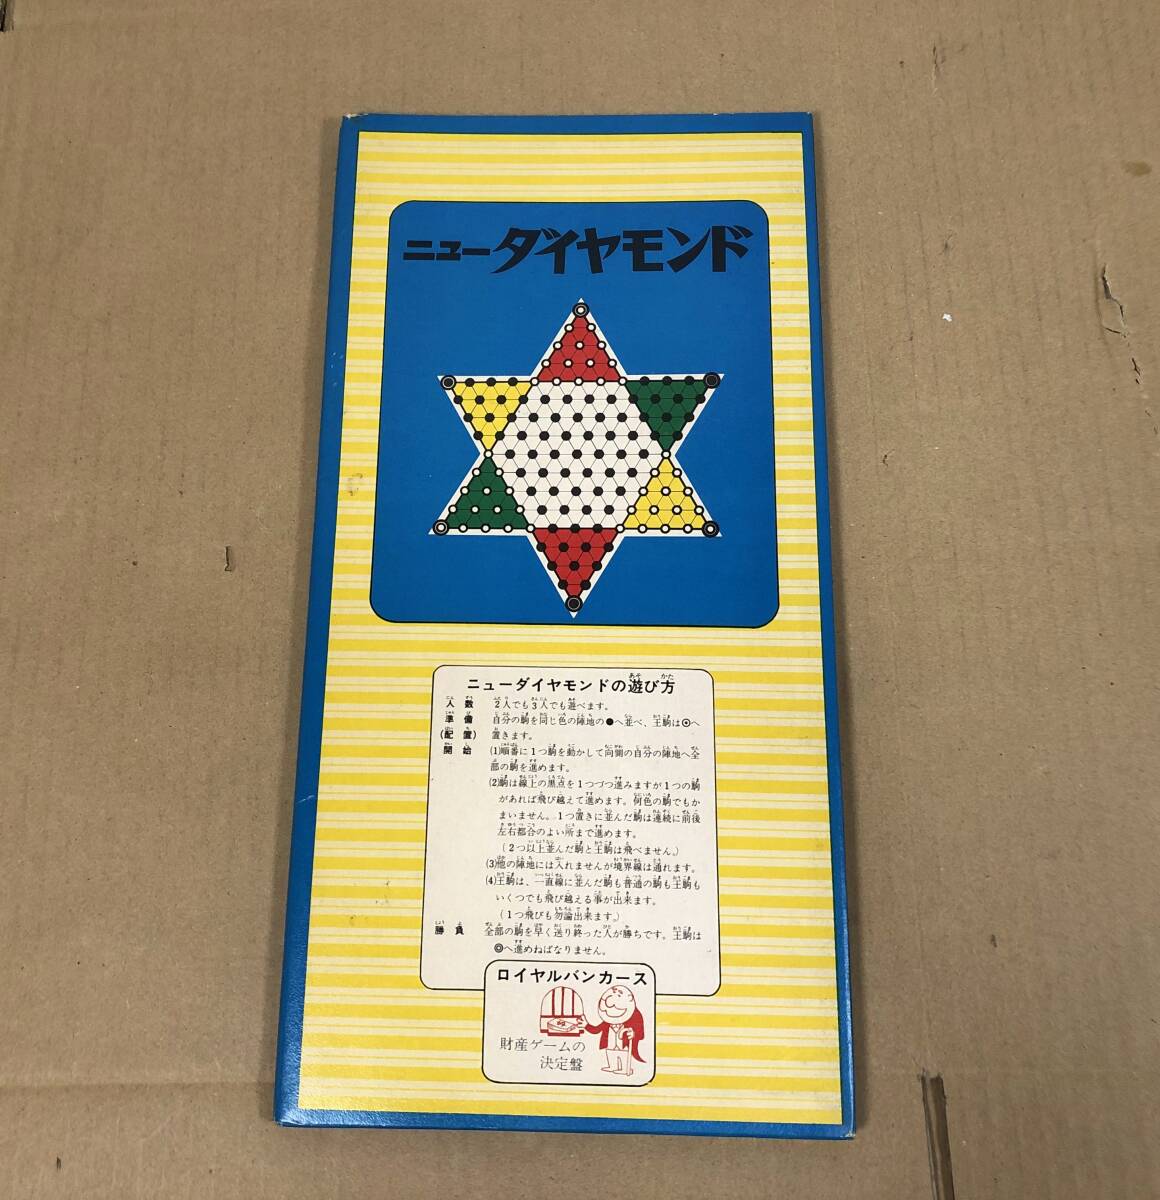 ニューダイヤモンド
ニューダイヤモンドの遊び方
人数 2人でも3人でも遊べます。
準備 自分の駒を同じ色の陣地の●へ並べ、王駒は⦿へ
(配置) 置きます。
開始 (1)順番に1つ駒を動かして向側の自分の陣地へ全
部の駒を進めます。
(2)駒は線上の黒点を1つづつ進みますが1つの駒
があれば飛び越えて進めます。何色の駒でもか
まいません。1つ置きに並んだ駒は連続に前後
左右都合のよい所まで進めます。
(2つ以上並んだ駒と王駒は飛べません。)
(3)他の陣地には入れませんが境界線は通れます。
(4)王駒は、一直線に並んだ駒も普通の駒も王駒も
いくつでも飛び越える事が出来ます。
(1つ飛びも勿論出来ます。)
勝負 全部の駒を早く送り終った人が勝ちです。王駒は
◎へ進めねばなりません。
ロイヤルバンカース
財産ゲームの
決定盤